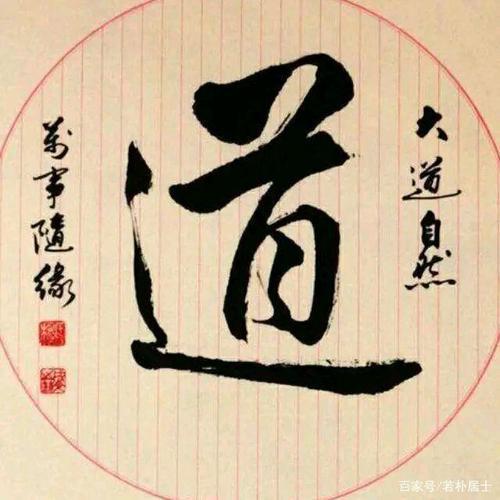 大道自然
道
萬事隨緣
百家号/若朴居士